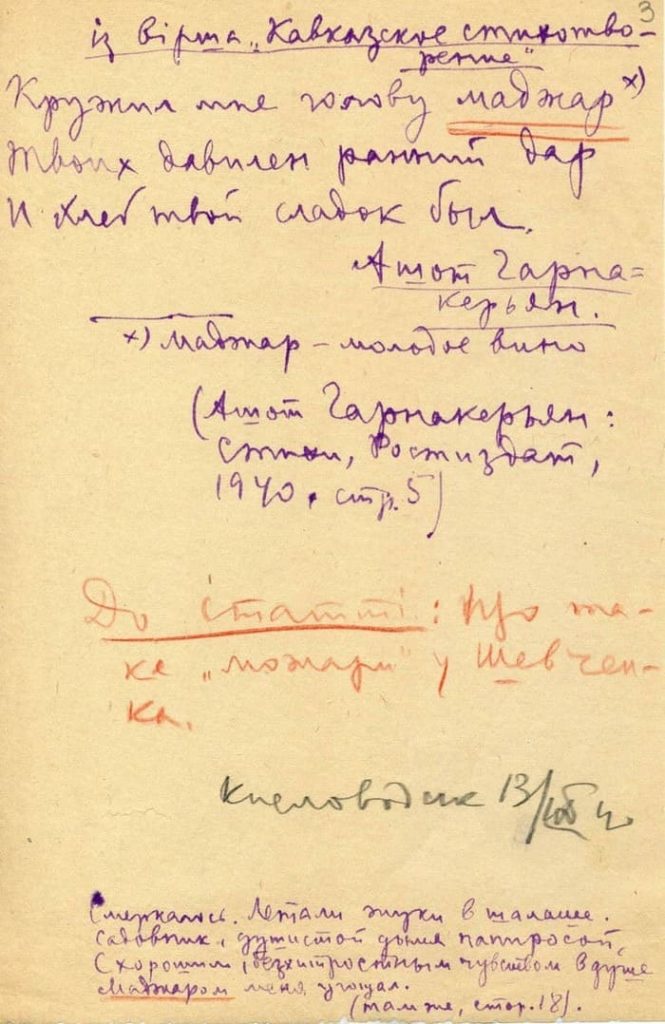 3
із вірша „Кавказское стихотво-
рение"
Кружил мне голову маджар х)
Твоих давилен ранний дар
И хлеб твой сладок был.
Ашот Гарна=
керьян.
х) маджар – молодое вино
(Ашот Гарнакерьян:
Стихи, Ростиздат,
1940, стр. 5)
До статті: Про та-
ке „можари" у Шевчен-
ка.
Кисловодск 13/VIII 40
Смеркалось. Летали жуки в шалаше.
Садовник, душистой дымя папиросой,
С хорошим, безхитростным чувством в душе
Маджаром меня угощал.
(там же, стор. 18).